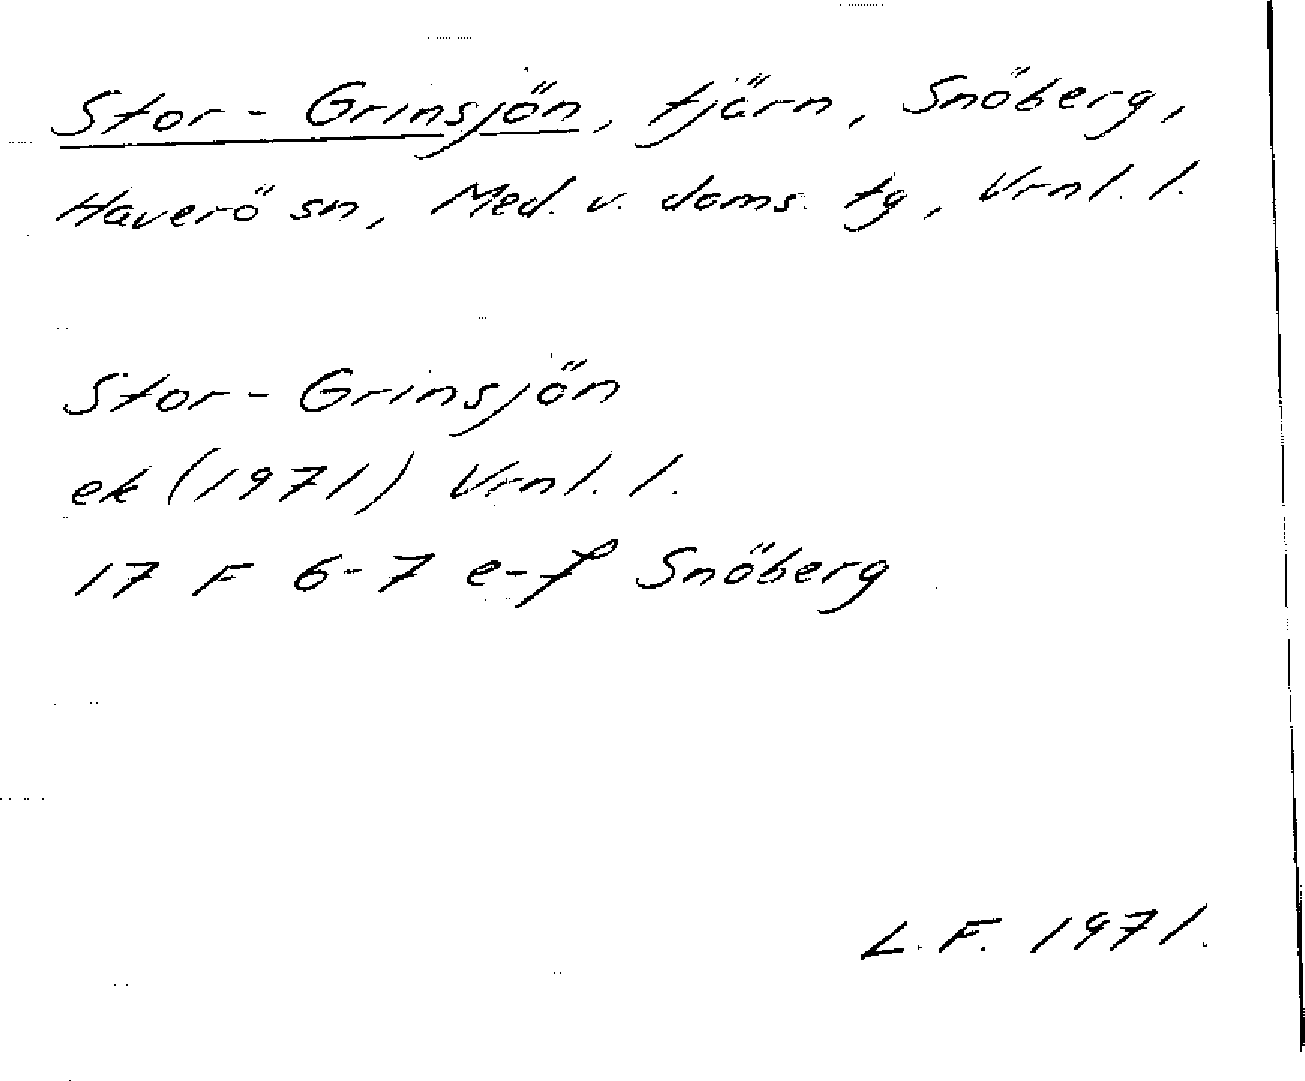 Stor-Grinsjön, tjärn, Snöberg,
Haverö sn, Med. v. doms. tg, Vrnl. l.
Stor-Grinsjön
ek (1971) Vrnl. l.
17 F 6-7 e-f Snöberg
L. F. 1971.